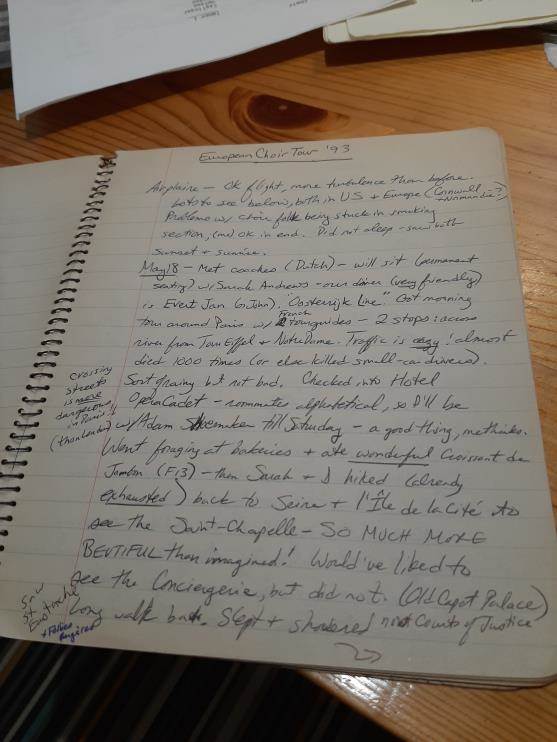 European Choir Tour '93
Airplane – OK flight, more turbulence than before.
lots to see below, both in US + Europe (Cornwall → Normandie?)
Problems w/ choir folk being stuck in smoking
section, (me) ok in end. Did not sleep – saw both
sunset + sunrise.
May 18 – Met coaches (Dutch) – will sit (permanent
seating) w/ Sarah Andrews – our driver (very friendly)
is Evert Jan (→John), "Oosterijk Line." Got morning
tour around Paris w/ French tourguides – 2 stops: across
river from Tour Eiffel + Notre Dame. Traffic is crazy! almost
died 1000 times (or else killed small-car drivers).
Sort of rainy but not bad. Checked into Hotel
Opera Cadet – roommates alphabetical, so I'll be
w/ Adam Shoemaker till Saturday – a good thing, methinks.
Went foraging at bakeries + ate wonderful Croissant de
Jambon (F13) – then Sarah + I hiked (already
exhausted) back to Seine + l'Île de la Cité to
see the Saint-Chapelle – SO MUCH MORE
BEUTIFUL than imagined! Would've liked to
see the Conciergerie, but did not. (Old Capet Palace)
Long walk back, Slept + showered now Courts of Justice
crossing
streets
is more
dangerous
in Paris!!
(than London)
Saw
St
Eustache